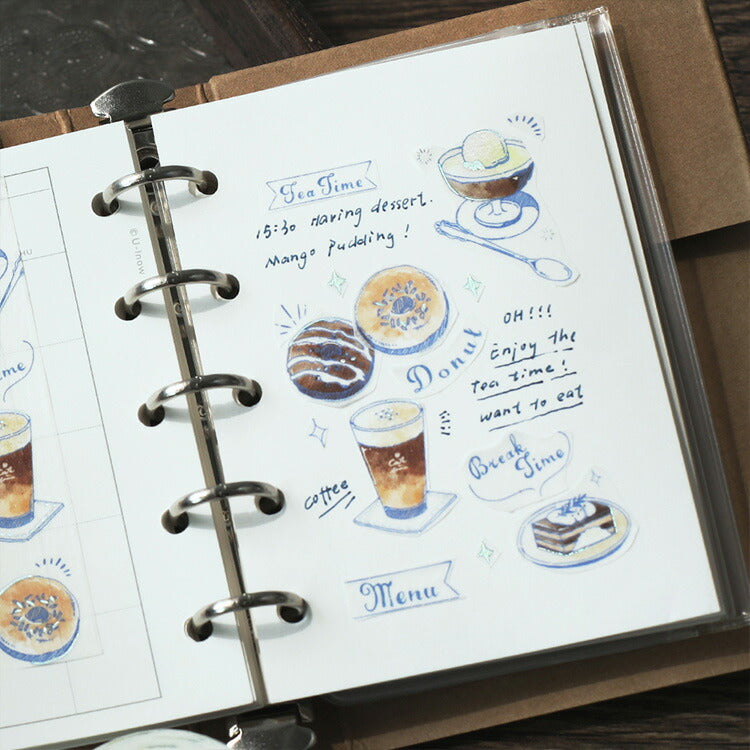 Tea Time
15:30 Having dessert.
Mango Pudding!
Donut
OH!!!
Enjoy the
Tea time!
want to eat
coffee
Break
Time
Menu
© U-inow
me